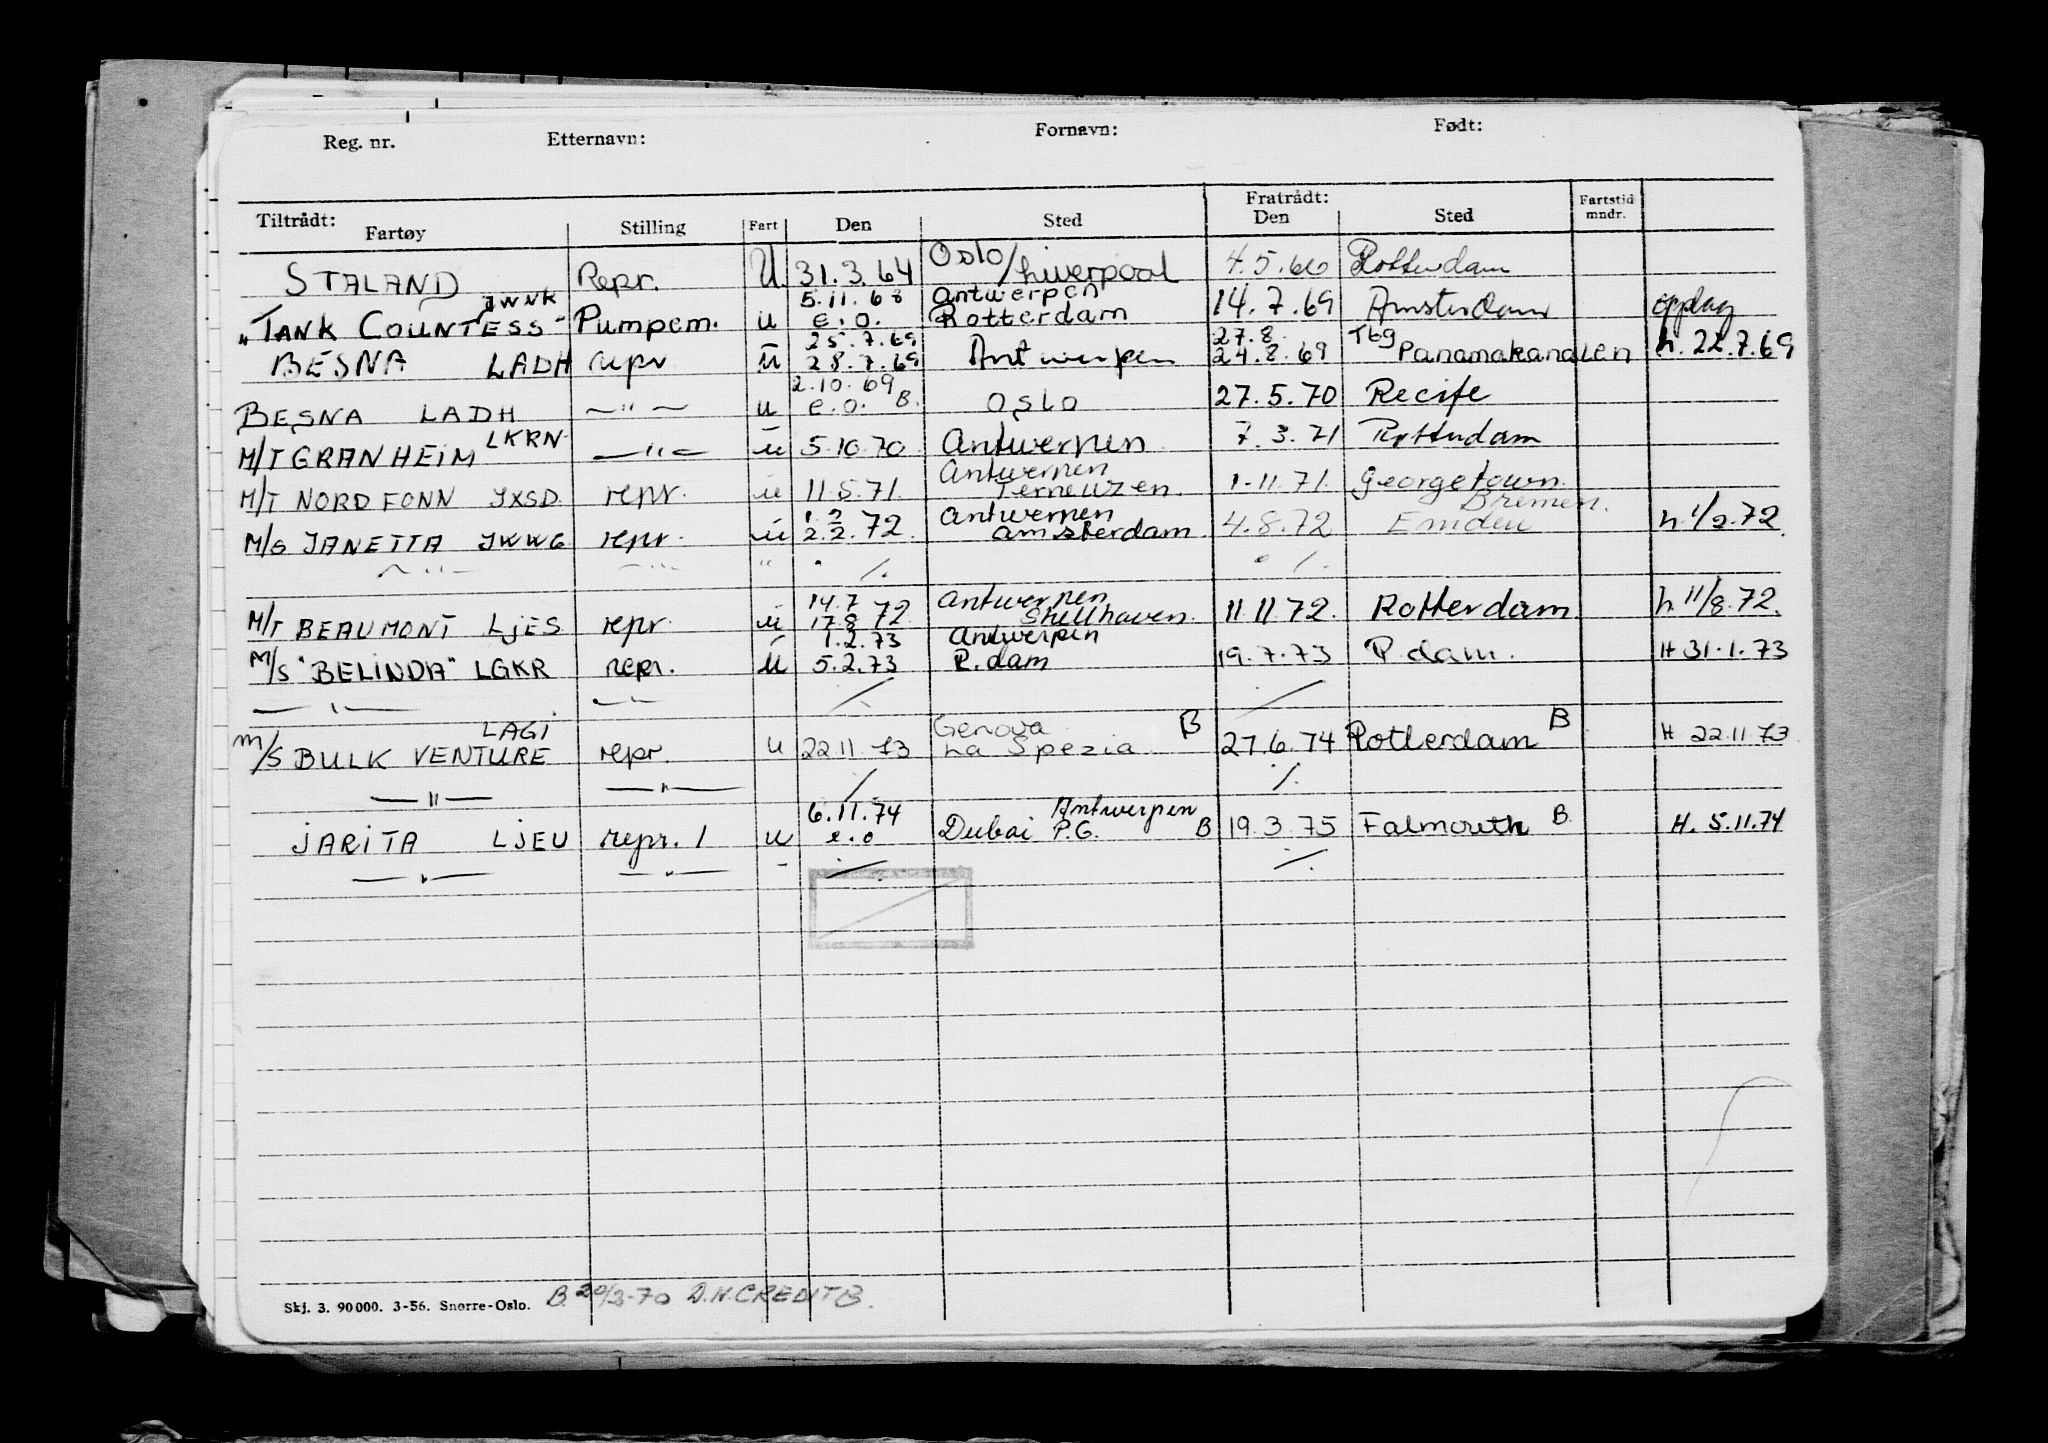 Reg. nr. Etternavn: Fornavn: Født:
Tiltrådt: Fratrådt:
Fartøy Stilling Fart Den Sted Den Sted Fartstid mndr.
STALAND Repr. U 31.3.64 Oslo/Liverpool 4.5.66 Rotterdam
JWNK 5.11.68 Antwerpen
"TANK COUNTESS" Pumpem. u e.o. Rotterdam 14.7.69 Amsterdam oppdag
25.7.69 27.8 Tbg
BESNA LADH repr u 28.7.69 Antwerpen 24.8.69 Panamakanalen h. 22.7.69
2.10.69
BESNA LADH —"— u e.o. B. Oslo 27.5.70 Recife
M/T GRANHEIM LKRN —"— u 5.10.70 Antwerpen 7.3.71 Rotterdam
Antwerpen
M/T NORDFONN JXSD. repr. u 11.5.71. Terneuzen. 1.11.71. Georgetown.
1.2 Antwerpen Bremen.
M/S JANETTA JWWG repr. u 2.2.72. Amsterdam. 4.8.72 Emden h. 1/2.72.
—"— —"— " ./. ./.
14.7 Antwerpen
M/T BEAUMONT LJES repr. u 17.8.72 Skellhaven. 11.11.72. Rotterdam. h. 11/8.72.
1.2.73 Antwerpen
M/S "BELINDA" LGKR repr. u 5.2.73 R.dam 19.7.73 R.dam. H 31.1.73
—"— —"— ./. ./.
LAGI Genova B B
M/S BULK VENTURE repr. u 22.11.73 La Spezia 27.6.74 Rotterdam H 22.11.73
—"— —"— ./. ./.
6.11.74 Antwerpen
JARITA LJEU repr. 1 u e.o Dubai P.G. B 19.3.75 Falmouth B. H. 5.11.74
—"— —"— - ./. ./.
Skj. 3. 90000. 3-56. Snorre-Oslo. B. 20/3-70 D.N.CREDITB.